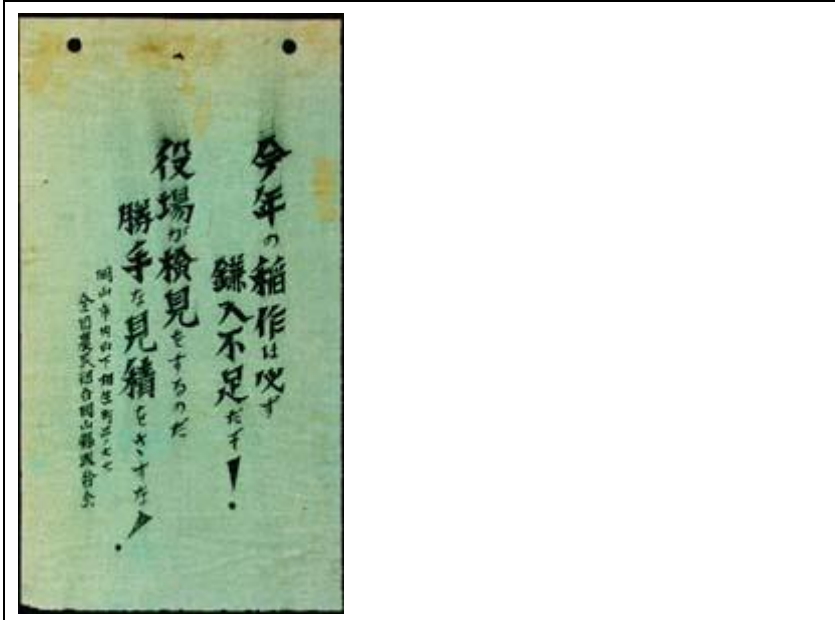 今年の稲作は必ず
鎌入不足だぞ！
役場が検見をするのだ
勝手な見積をさすな！
岡山市内山下相生町
全国農民組合岡山県評議会